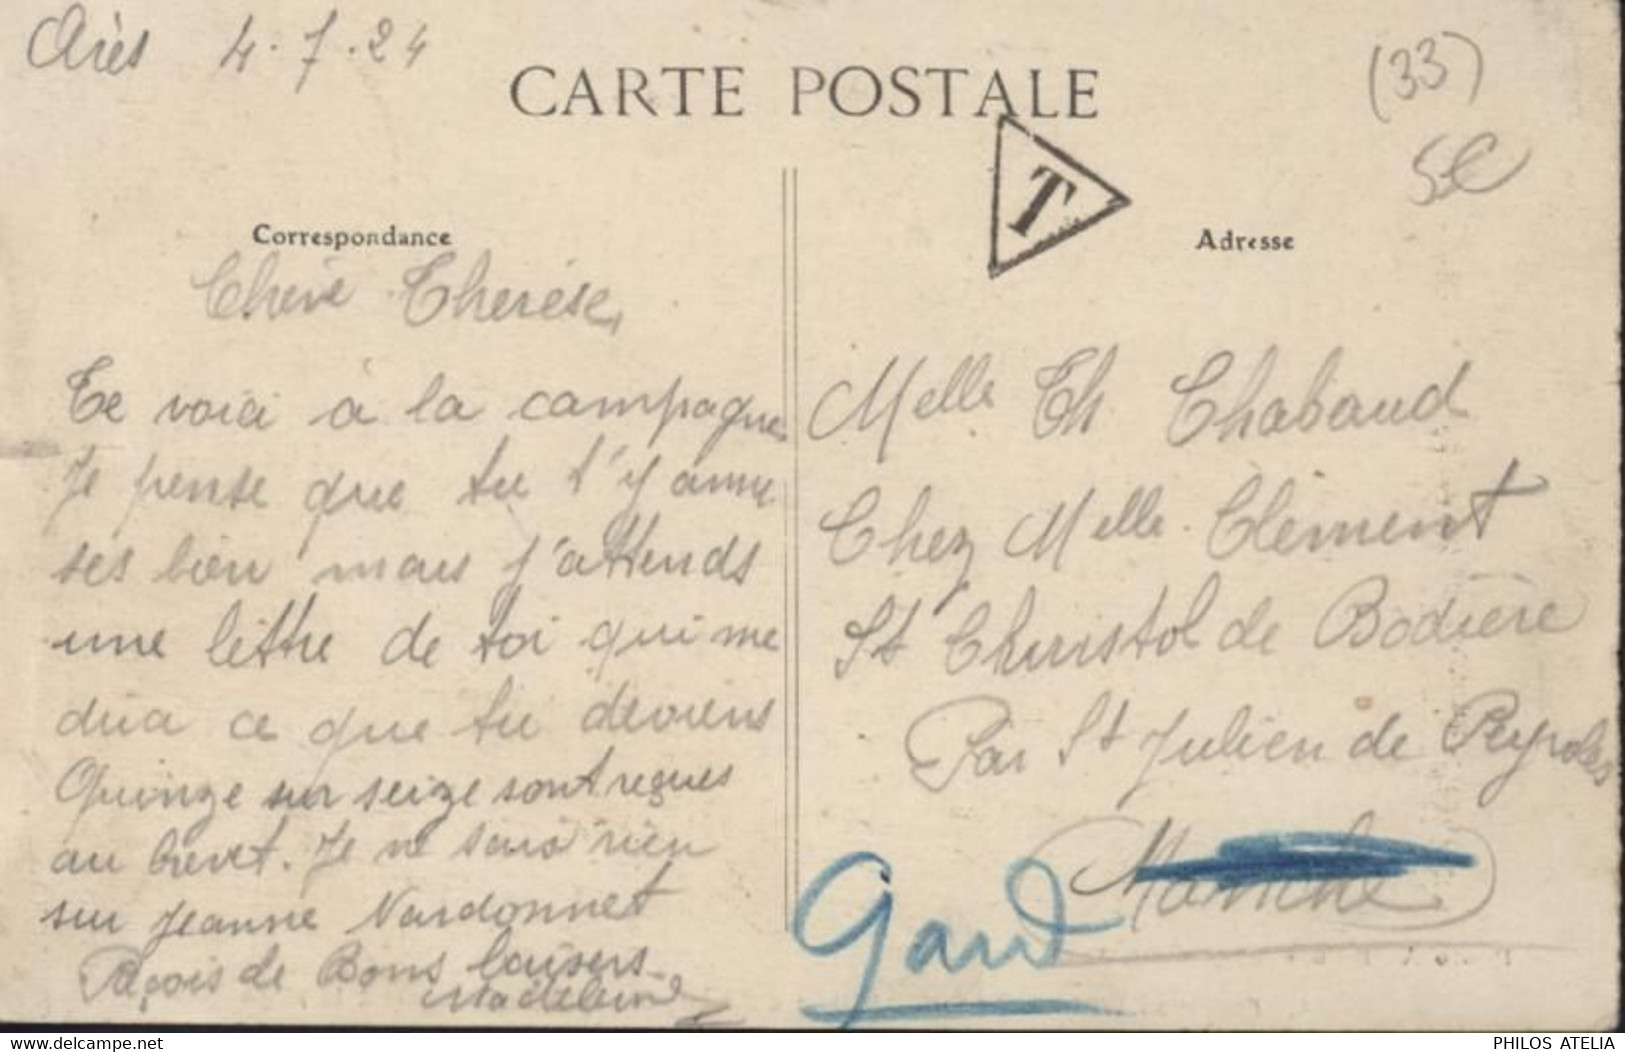 Arès 4.7.24
CARTE POSTALE
(33)
5€
T
Correspondance
Adresse
Chère Therèse,
Te voici à la campagne
Je pense que tu t'y amu
ses bien mais j'attends
une lettre de toi qui me
dira ce que tu deviens
Quinze sur seize sont reçues
au brevet. Je ne sais rien
sur Jeanne Nardonnet
Reçois de Bons baisers
Madeleine
Melle Th Chabaud
Chez Melle Clèment
St Christol de Rodière
Par St Julien de Peyrolas
Manche
Gard
delcampe.net
PHILOS ATELIA